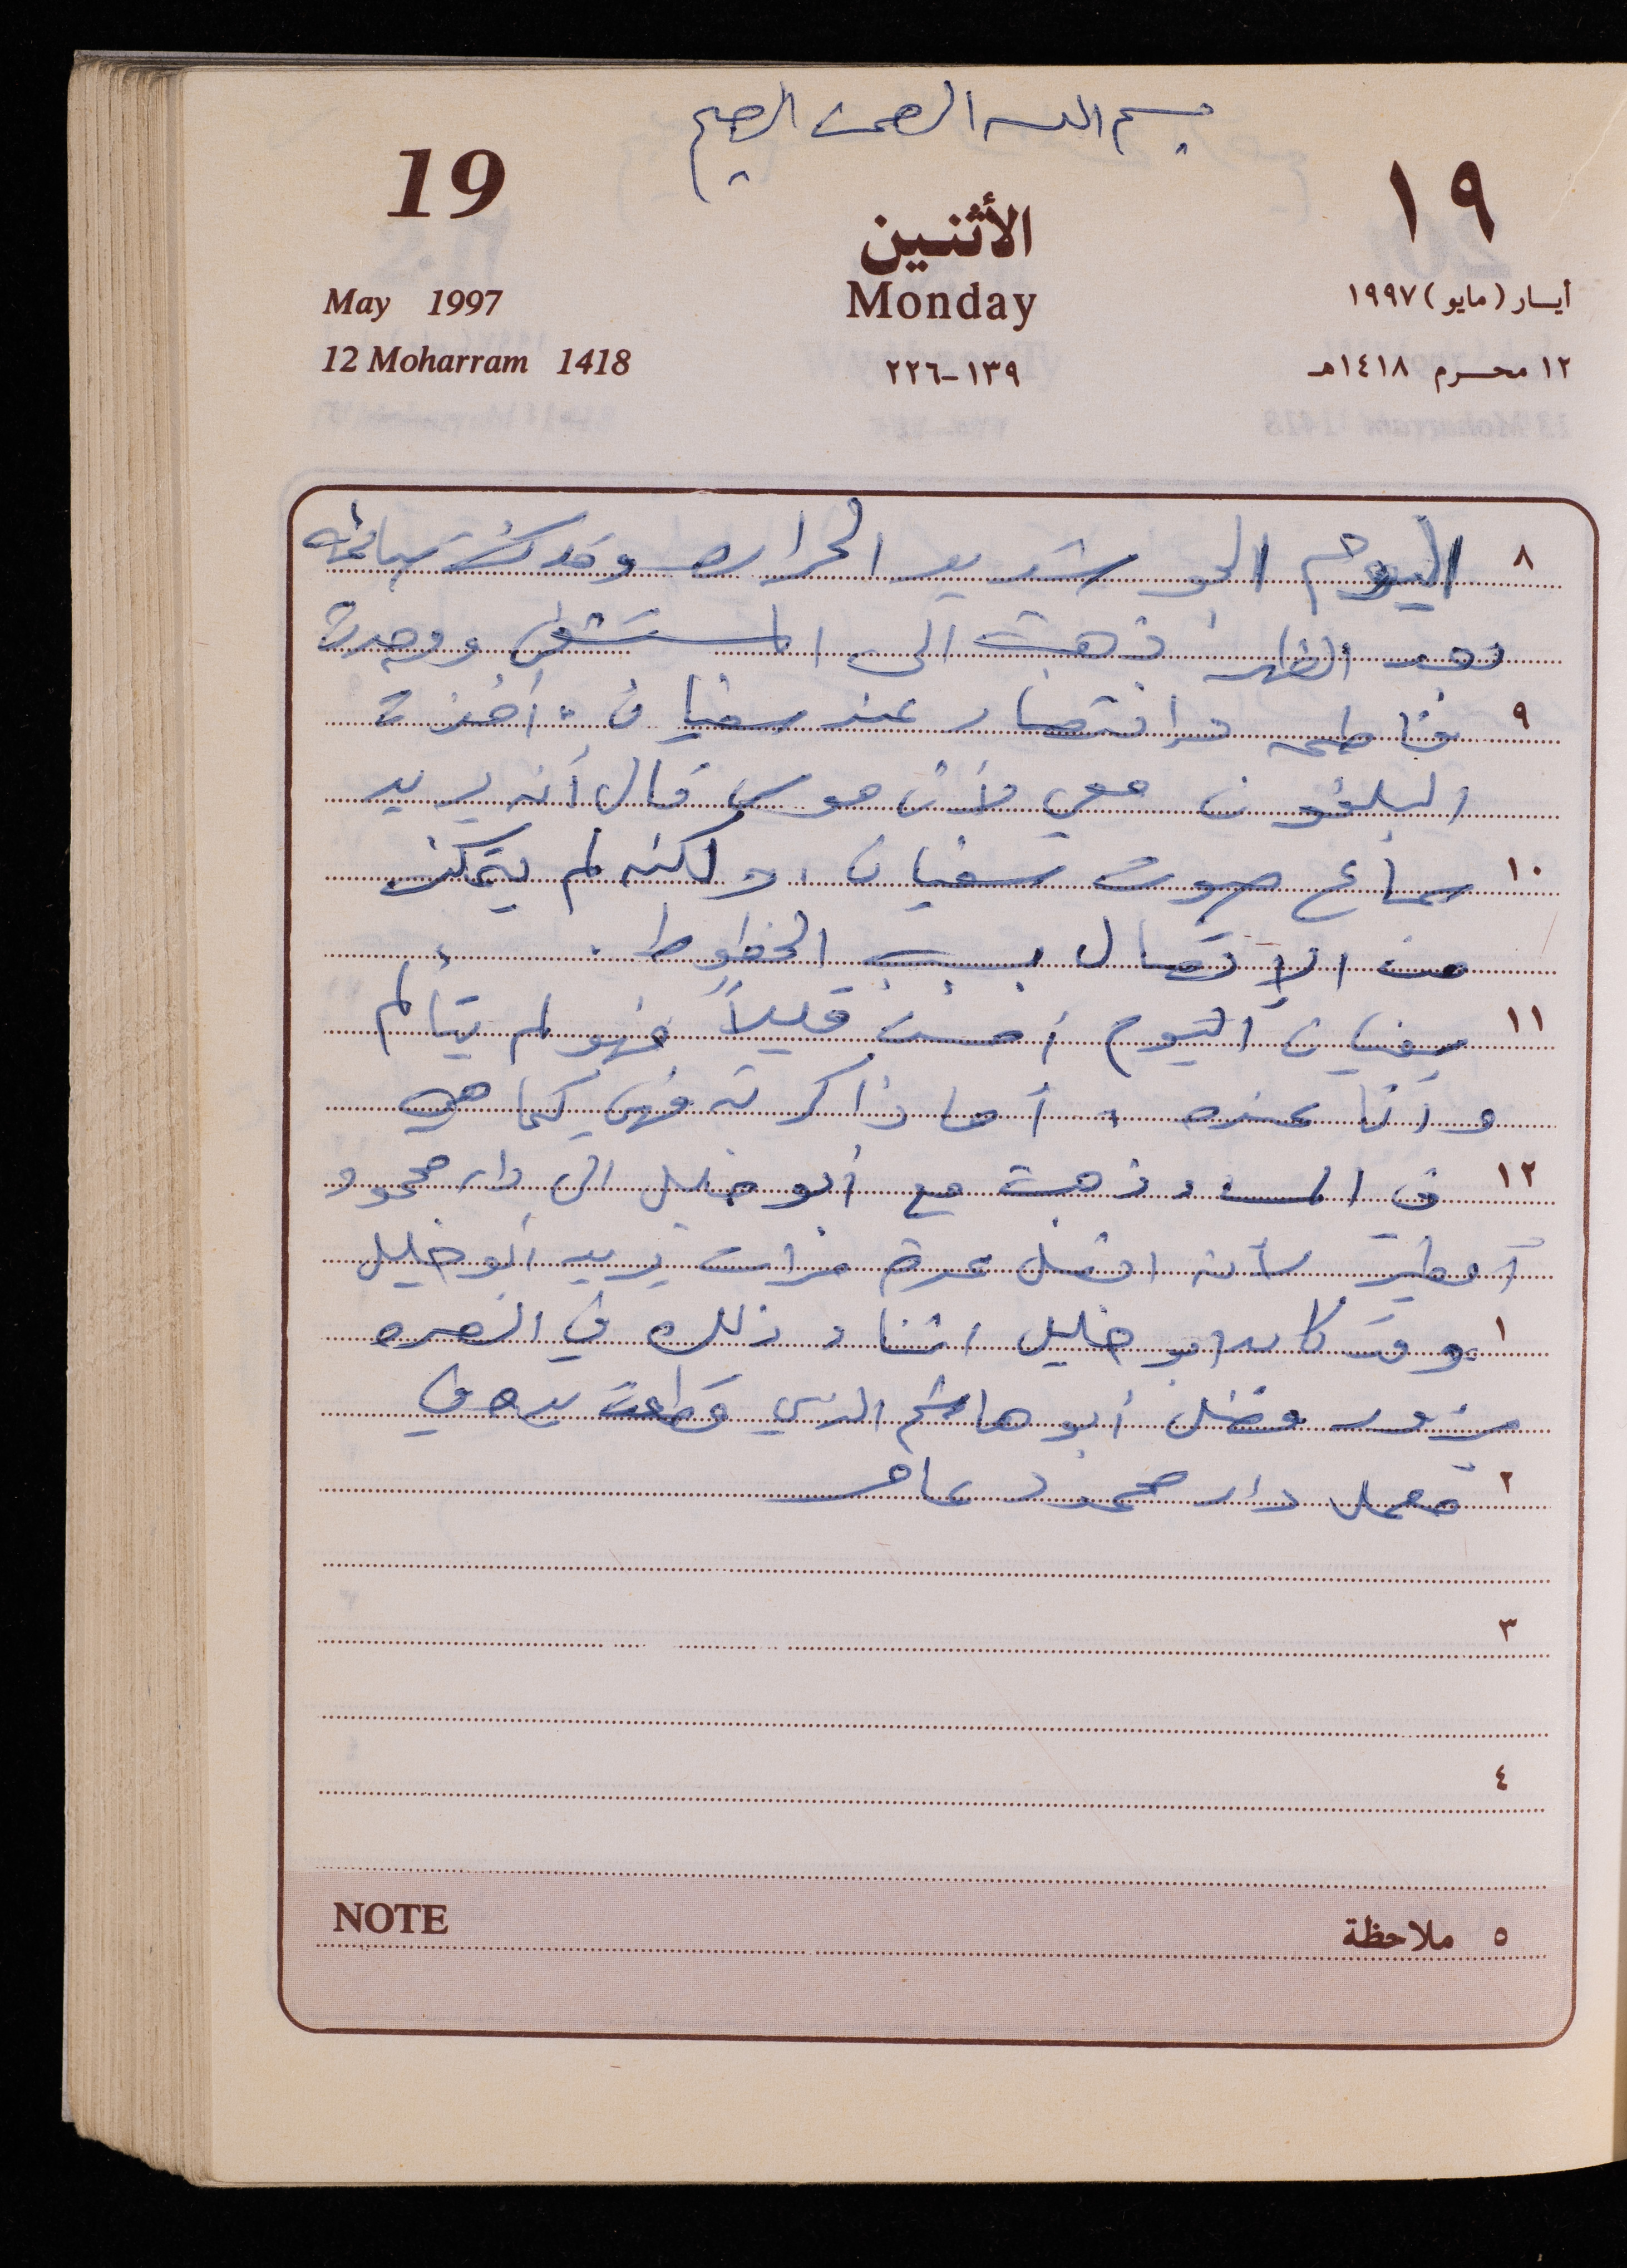 بسم الله الرحمن الرحيم
19
الأثنين
١٩
May 1997
Monday
أيـار (مايو) ١٩٩٧
12 Moharram 1418
١٣٩-٢٢٦
١٢ محـرم ١٤١٨هـ
٨ اليوم الجو شديد الحراره وقد كنت صائمه
بعد الظهر ذهبت الى المستشفى ووجدت
٩ فاطمه وانتصار عند سفيان . أخذت
البلفون معي لأن موسى قال أنه يريد
١٠ سماع صوت سفيان ، ولكنه لم يتمكن
من الإتصال بسبب الخطوط .
١١ سفيان اليوم أحسن قليلاً فهو لم يتألم
وأنا عنده ، أما ذاكرته فهي كما هي
١٢ في المساء ذهبت مع أبو خليل الى دار محمود
لأنه اتصل عدة مرات يريد أبو خليل
١ وقد كان أبو خليل اثناء ذلك في
يزور فضل أبو هاشم الذي قطعت يده في
٢ معمل دار محمود عامر
٣
٤
NOTE
٥ ملاحظة